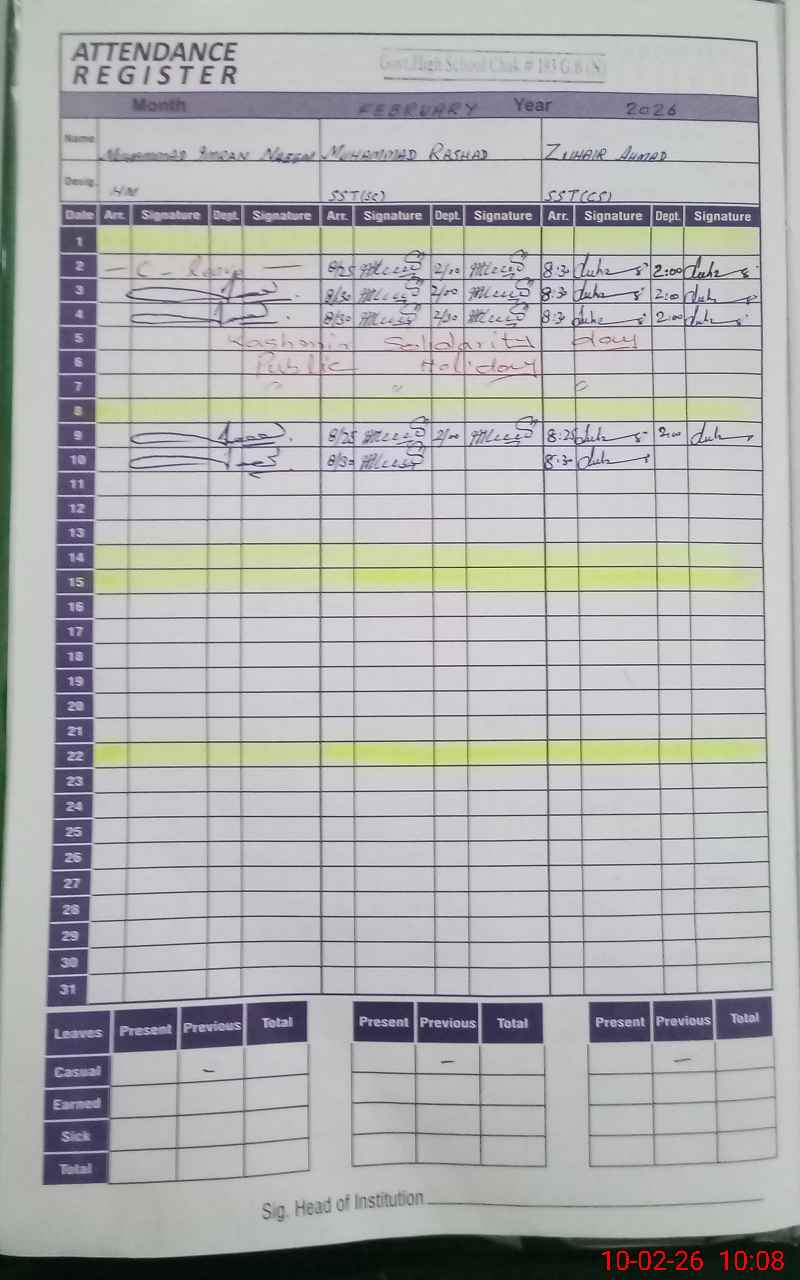 ATTENDANCE
REGISTER
Govt. High School Chak # 193 G.B (S)
Month FEBRUARY Year 2026
Name MUHAMMAD IMRAN NAEEM MUHAMMAD RASHAD ZUHAIR AHMAD
Desig. HM SST(SC) SST(CS)
Date Arr. Signature Dept. Signature Arr. Signature Dept. Signature Arr. Signature Dept. Signature
1
2 — C - leave — 8/25 2/00 8:30 2:00
3 8/30 2/00 8:30 2:00
4 8/30 2/30 8:30 2:00
5 Kashmir Solidarity day
6 Public Holiday
7 " " "
8
9 8/25 2/00 8:25 2:00
10 8/30 8:30
11
12
13
14
15
16
17
18
19
20
21
22
23
24
25
26
27
28
29
30
31
Leaves Present Previous Total Present Previous Total Present Previous Total
Casual – – –
Earned
Sick
Total
Sig. Head of Institution
10-02-26 10:08